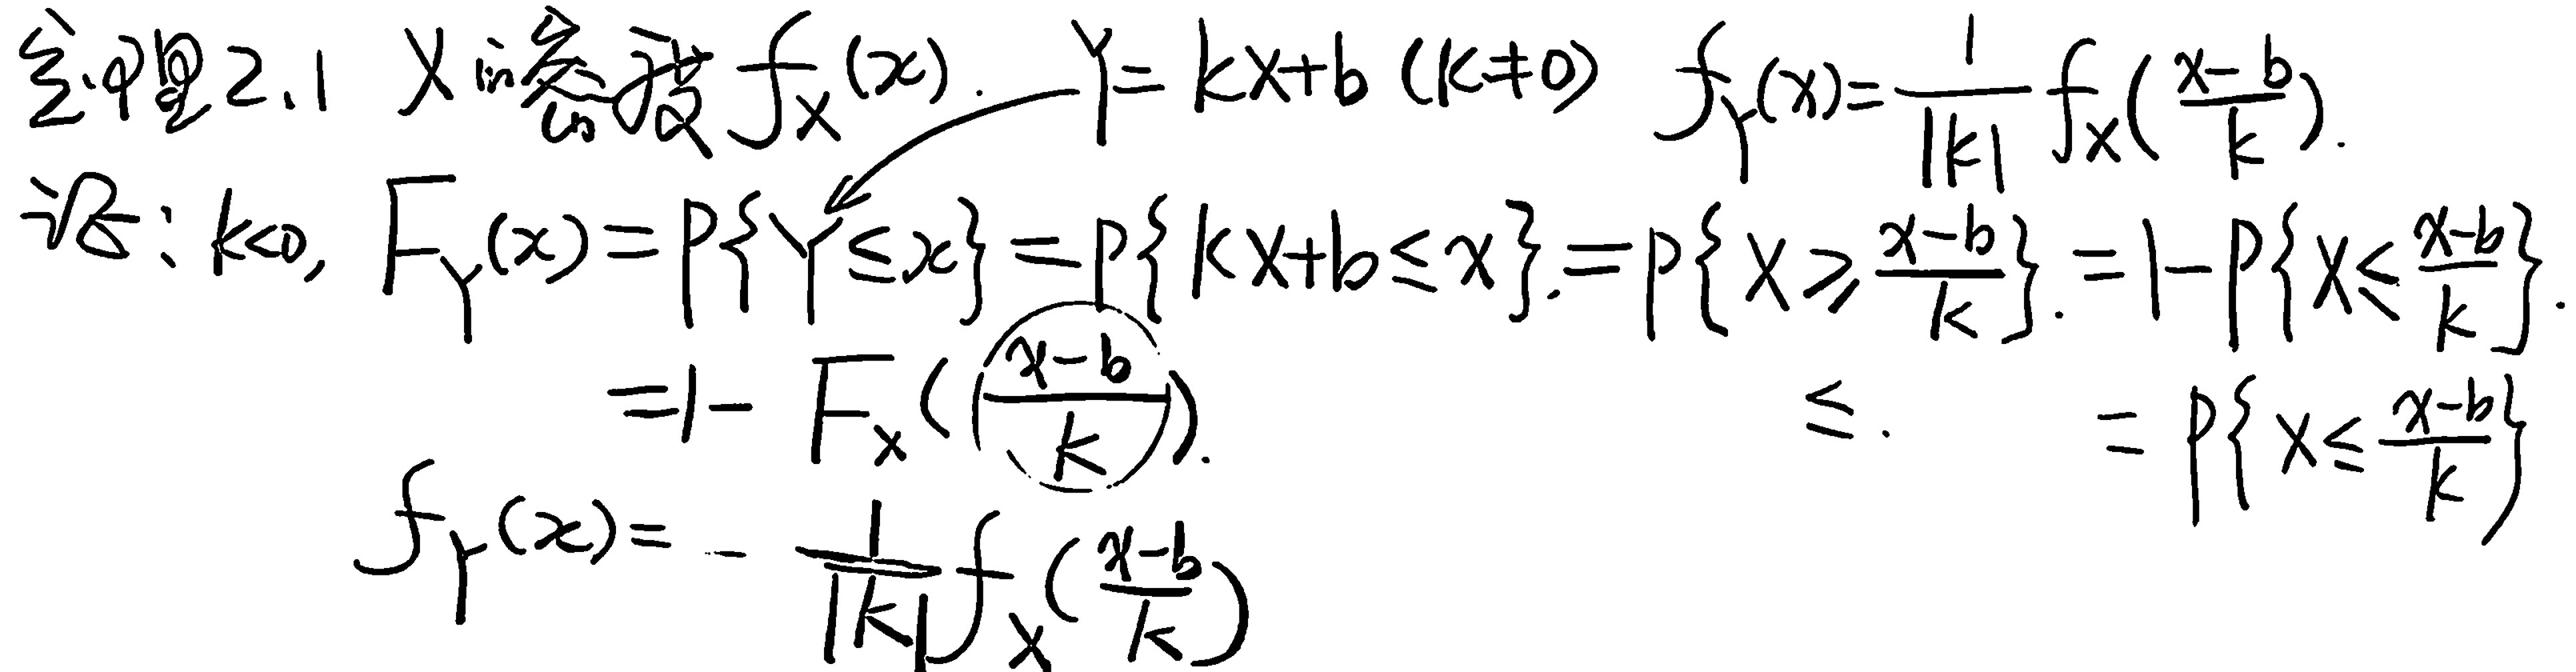 定理2.1 X的密度 f_X(x). Y=kX+b (k≠0) f_Y(x)=\frac{1}{|k|}f_X(\frac{x-b}{k}).
证: k<0, F_Y(x)=P{Y≤x}=P{kX+b≤x}.=P{X≥\frac{x-b}{k}}.=1-P{X≤\frac{x-b}{k}}.
=1-F_X(\frac{x-b}{k}). ≤. =P{X≤\frac{x-b}{k}}
f_Y(x)=-\frac{1}{|k|}f_X(\frac{x-b}{k})